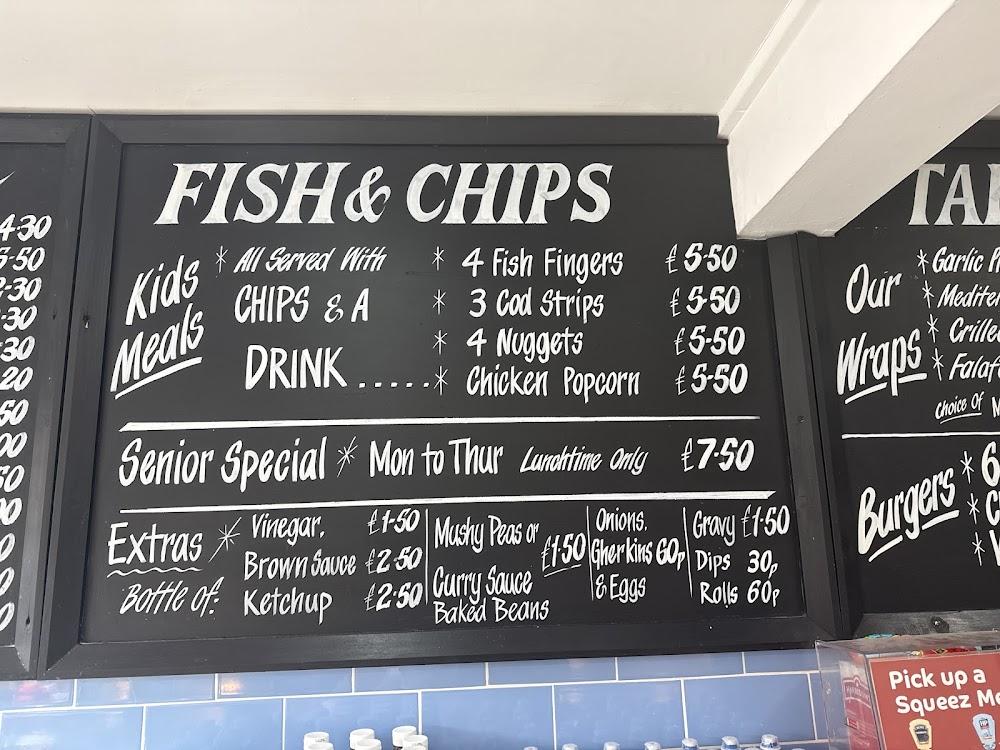 4·30
5·50
·30
·30
·30
·20
50
00
50
00
0
0
0
FISH & CHIPS
Kids
Meals
* All Served With
CHIPS & A
DRINK .....
* 4 Fish Fingers £5·50
* 3 Cod Strips £5·50
* 4 Nuggets £5·50
* Chicken Popcorn £5·50
Senior Special * Mon to Thur Lunchtime Only £7·50
Extras *
Bottle of:
Vinegar. £1·50
Brown Sauce £2·50
Ketchup £2·50
Mushy Peas or
£1·50
Curry Sauce
Baked Beans
Onions.
Gherkins 60p
& Eggs
Gravy £1·50
Dips 30p
Rolls 60p
Our
Wraps
* Garlic
*
* 
*
Choice Of
Burgers
* 6
*
*
Pick up a
Squeez